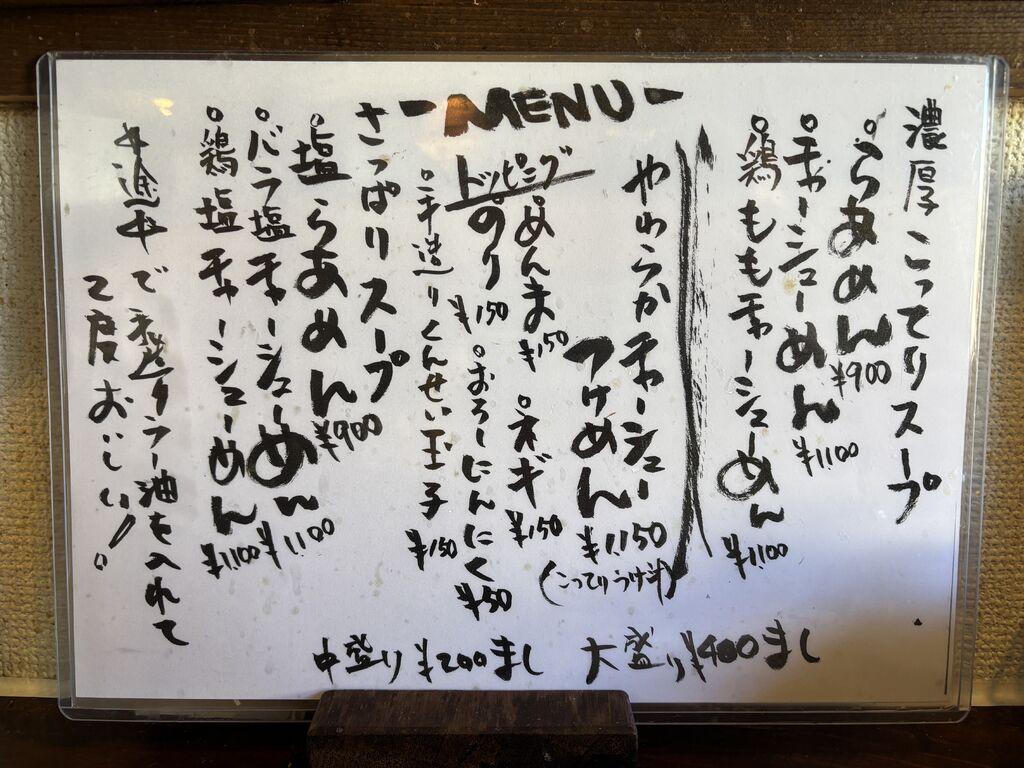 -MENU-
濃厚こってりスープ
○らあめん ¥900
○チャーシューめん ¥1100
○鶏ももチャーシューめん ¥1100
やわらかチャーシュー
つけめん ¥1150
(こってりつけ汁)
トッピング
○めんま ¥150
○ネギ ¥150
○のり ¥150
○おろしにんにく ¥50
○手造りくんせい玉子 ¥150
さっぱりスープ
○塩らあめん ¥900
○バラ塩チャーシューめん ¥1100
○鶏塩チャーシューめん ¥1100
途中で
ラー油を入れて
2度おいしい!
中盛り ¥200まし 大盛り ¥400まし